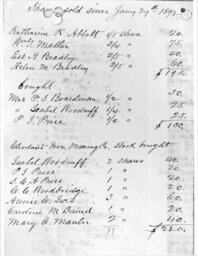 Shares sold since Jany 27th 189
Katharine K. Abbott 1/5 share 20.
Wm G. Mather 3/4 " 75.
Est A. Bradley 2/5 " 40.
Helen M. Bradley 3/5 " 60.
$195.
bought
Mrs P. S. Boardman 1/2 " 50.
" Isabel Woodruff 1/4 " 25.
P. I. Price 1/4 " 25
$100.
Cleveland Iron Mining Co. stock bought
Isabel Woodruff 2 shares 40.
P I Price 1 " 20.
S. E. A Price 1 " 20.
E. C. Woodbridge 1 " 20.
Annie C. 3 " 60.
Caroline M. Daniel 1 " 20.
Mary E. Manter 2 " 40.
11 $220.